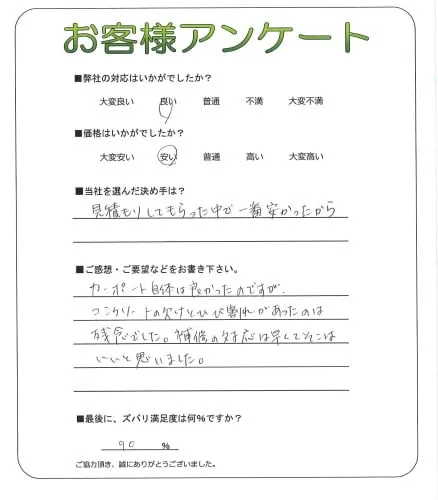 お客様アンケート
■弊社の対応はいかがでしたか？
大変良い 良い 普通 不満 大変不満
■価格はいかがでしたか？
大変安い 安い 普通 高い 大変高い
■当社を選んだ決め手は？
見積もりしてもらった中で一番安かったから
■ご感想・ご要望などをお書き下さい。
カーポート自体は良かったのですが、
コンクリートの欠けとひび割れがあったのは
残念でした。補修の対応は早くてそこは
いいと思いました。
■最後に、ズバリ満足度は何%ですか？
90 %
ご協力頂き、誠にありがとうございました。